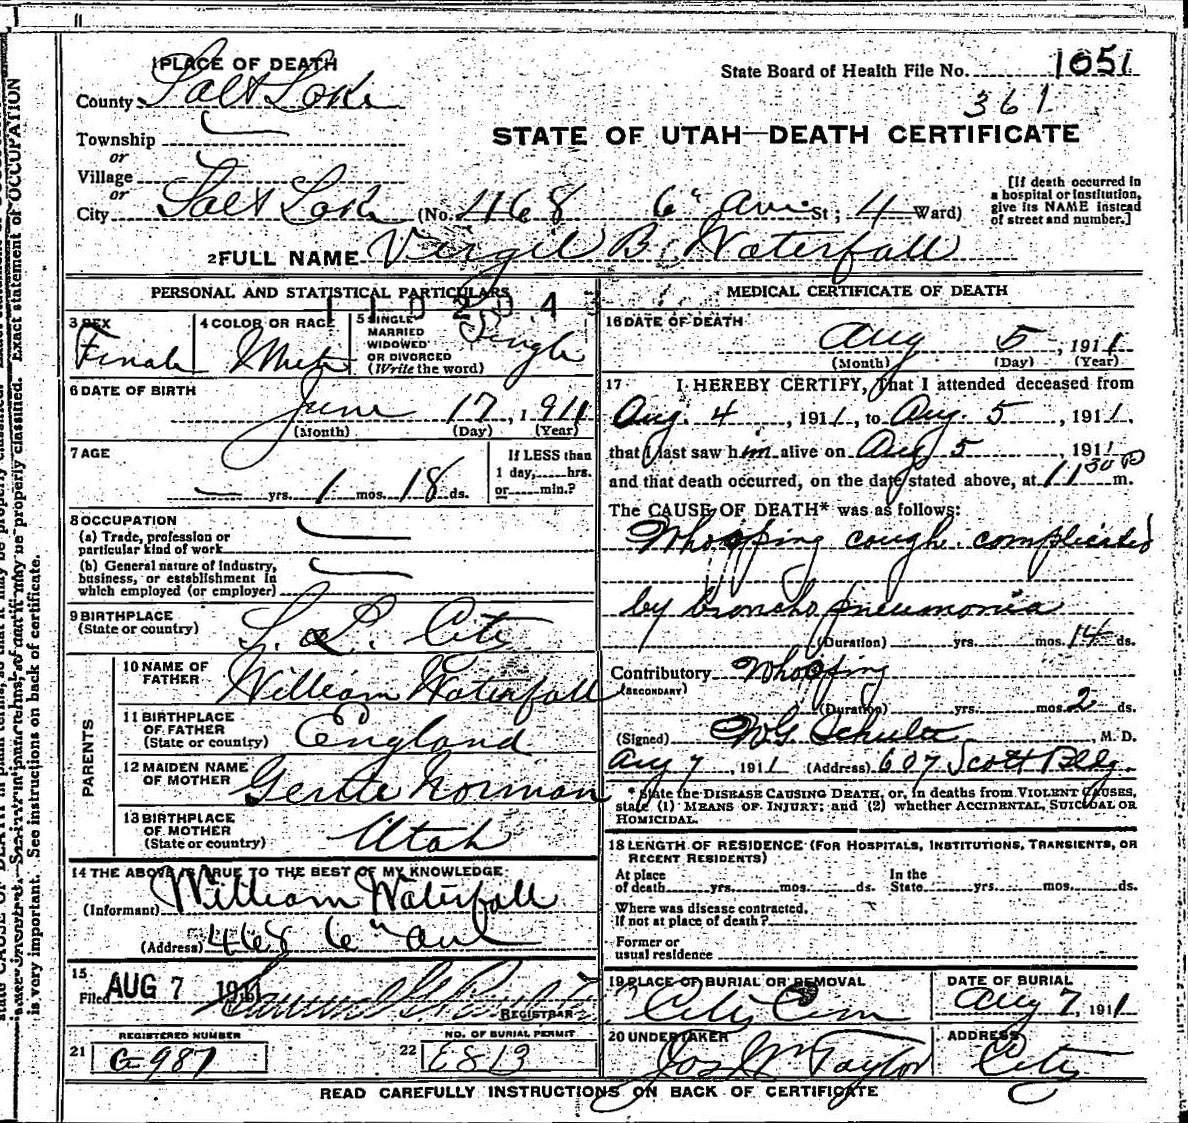 1 PLACE OF DEATH
County Salt Lake
State Board of Health File No. 1051
361
Township
or
Village
or
STATE OF UTAH—DEATH CERTIFICATE
City Salt Lake (No. 468 6" Ave St; 4 Ward)
[If death occurred in
a hospital or institution,
give its NAME instead
of street and number.]
2 FULL NAME Virgil B. Waterfall
PERSONAL AND STATISTICAL PARTICULARS
3 SEX
4 COLOR OR RACE
5 SINGLE
MARRIED
WIDOWED
OR DIVORCED
(Write the word)
Single
6 DATE OF BIRTH
June 17, 1911
(Month) (Day) (Year)
7 AGE
If LESS than
1 day, hrs.
or min.?
— yrs. 1 mos. 18 ds.
8 OCCUPATION
(a) Trade, profession or
particular kind of work
(b) General nature of industry,
business, or establishment in
which employed (or employer)
9 BIRTHPLACE
(State or country)
S. L. City
PARENTS
10 NAME OF
FATHER
William Waterfall
11 BIRTHPLACE
OF FATHER
(State or country)
England
12 MAIDEN NAME
OF MOTHER
Gertie Norman
13 BIRTHPLACE
OF MOTHER
(State or country)
Utah
14 THE ABOVE IS TRUE TO THE BEST OF MY KNOWLEDGE
(Informant) William Waterfall
(Address) 468 6" ave
15
Filed AUG 7 1911
REGISTRAR
REGISTERED NUMBER
21 G-987
NO. OF BURIAL PERMIT
22 E813
MEDICAL CERTIFICATE OF DEATH
16 DATE OF DEATH
Aug 5, 1911
(Month) (Day) (Year)
17 I HEREBY CERTIFY, That I attended deceased from
Aug. 4, 1911, to Aug. 5, 1911.
that I last saw him alive on Aug 5 1911
and that death occurred, on the date stated above, at 11 30 P m.
The CAUSE OF DEATH* was as follows:
Whooping cough complicated
by broncho pneumonia
(Duration) yrs. mos. 14 ds.
Contributory Whooping
(SECONDARY)
(Duration) yrs. mos. 2 ds.
(Signed) W G Schulte, M. D.
Aug 7, 1911 (Address) 607 Scott Bldg.
* State the DISEASE CAUSING DEATH, or, in deaths from VIOLENT CAUSES,
state (1) MEANS OF INJURY; and (2) whether ACCIDENTAL, SUICIDAL OR
HOMICIDAL.
18 LENGTH OF RESIDENCE (FOR HOSPITALS, INSTITUTIONS, TRANSIENTS, OR
RECENT RESIDENTS)
At place
of death yrs. mos. ds.
In the
State yrs. mos. ds.
Where was disease contracted,
If not at place of death?
Former or
usual residence
19 PLACE OF BURIAL OR REMOVAL
City Cem
DATE OF BURIAL
Aug 7, 1911
20 UNDERTAKER
Jos Wm Taylor
ADDRESS
City
READ CAREFULLY INSTRUCTIONS ON BACK OF CERTIFICATE
properly classified. Exact statement of OCCUPATION
is very important. See instructions on back of certificate.